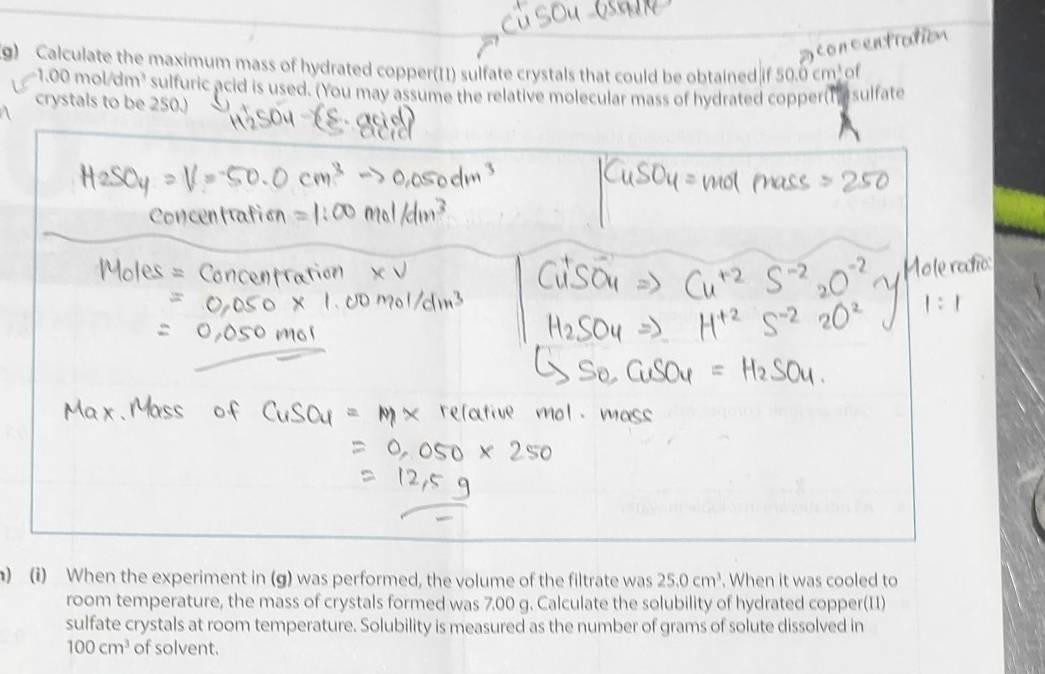 CuSO4
concentration
g) Calculate the maximum mass of hydrated copper(II) sulfate crystals that could be obtained if 50.0 cm³ of
1.00 mol/dm³ sulfuric acid is used. (You may assume the relative molecular mass of hydrated copper(II) sulfate
crystals to be 250.)
H2SO4 - (s. acid)
H2SO4 = V = 50.0 cm³ → 0,050dm³
CuSO4 = mol mass = 250
Concentration = 1.00 mol/dm³
Moles = Concentration × V
= 0,050 × 1.00 mol/dm³
= 0,050 mol
Cu⁺SO4⁻ ⇒ Cu⁺² S⁻² 2O⁻²
H2SO4 ⇒ H⁺² S⁻² 2O²
Mole ratio:
1:1
↳ So, CuSO4 = H2SO4.
Max. Mass of CuSO4 = M × relative mol. mass
= 0,050 × 250
= 12,5 g
h) (i) When the experiment in (g) was performed, the volume of the filtrate was 25.0 cm³. When it was cooled to
room temperature, the mass of crystals formed was 7.00 g. Calculate the solubility of hydrated copper(II)
sulfate crystals at room temperature. Solubility is measured as the number of grams of solute dissolved in
100 cm³ of solvent.